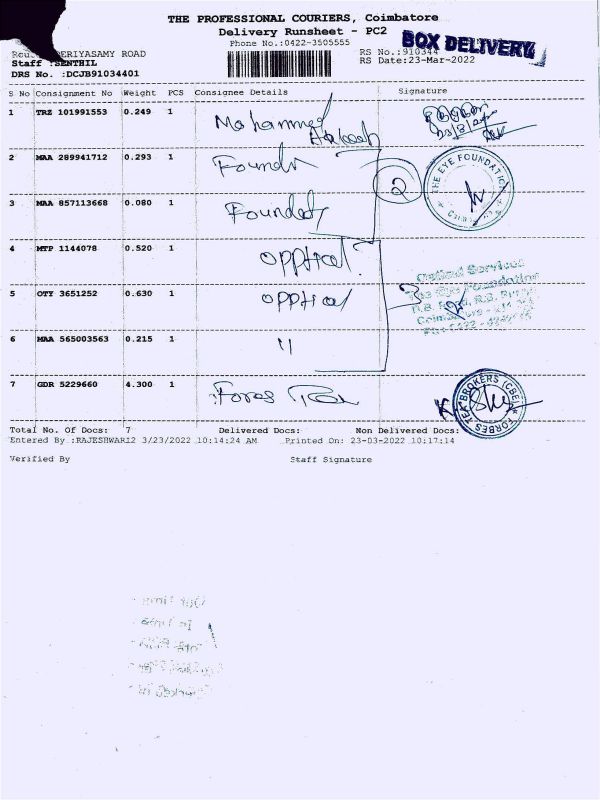 THE PROFESSIONAL COURIERS, Coimbatore
Delivery Runsheet - PC2
Phone No.:0422-3505555
BOX DELIVERY
PERIYASAMY ROAD
RS No.:910344
Staff :SENTHIL
RS Date:23-Mar-2022
DRS No. :DCJB91034401
S No Consignment No Weight PCS Consignee Details Signature
1 TRZ 101991553 0.249 1 Mohammed
2 MAA 289941712 0.293 1
2
THE EYE FOUNDATION
3 MAA 857113668 0.080 1
4 MTP 1144078 0.520 1 opptical
Optical Services
The Eye Foundation
5 OTY 3651252 0.630 1 opptical
3
6 MAA 565003563 0.215 1 "
7 GDR 5229660 4.300 1
FORBES TEA BROKERS (CBE)
Total No. Of Docs: 7 Delivered Docs: Non Delivered Docs:
Entered By :RAJESHWARI2 3/23/2022 10:14:24 AM Printed On: 23-03-2022 10:17:14
Verified By Staff Signature